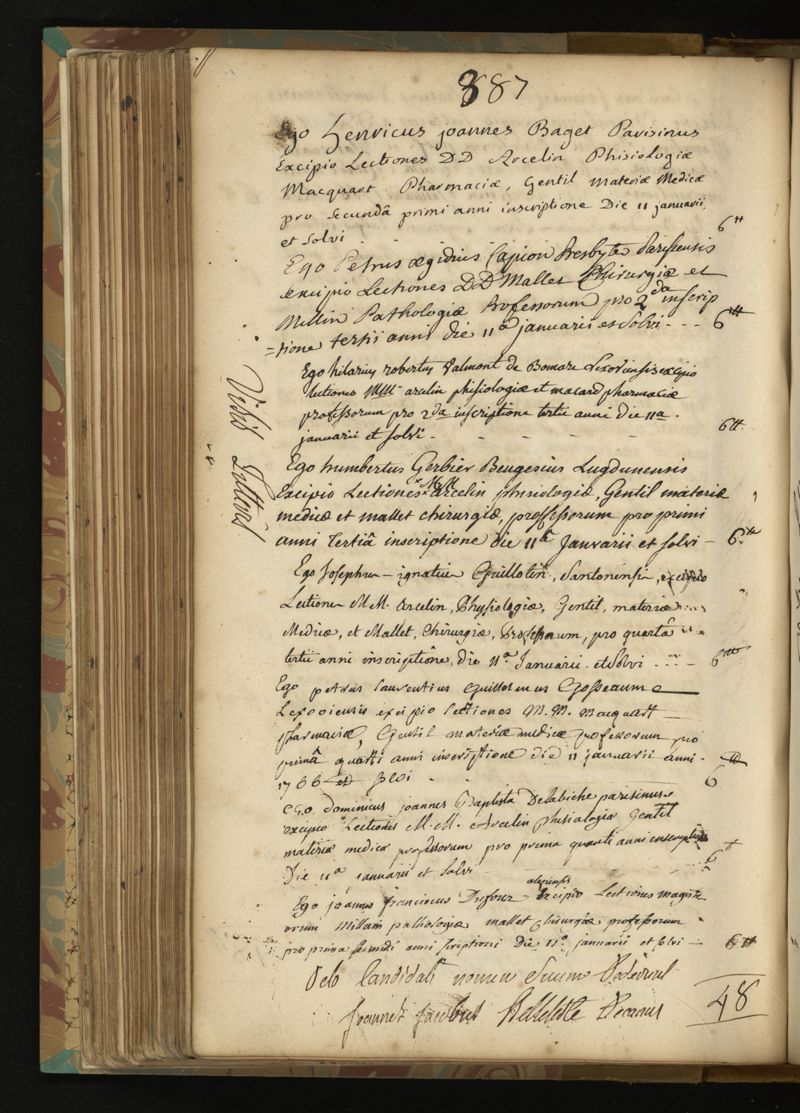 887
Ego henricus joannes Baget Parisinus
Excipio Lectiones DD Arcelin Phisiologiæ
Macquart Pharmaciæ, Gentil materiæ Medicæ
pro secundâ primi anni inscriptione Die 11 januarii
et solvi . . 6tt
Ego Petrus ægidius Capion Presbyter Parisiensis
excipio Lectiones DD Mallet Chirurgiæ et
Millin Pathologiæ Professorum pro 2da inscrip
=tione tertii anni die 11a januarii et solvi - - - 6tt
Ego hilarius robertus Valmont de Bomare excipio
lectiones MM arcelin phisiologiæ et macard pharmaciæ
professorum pro 2da inscriptione tertii anni die 11a
januarii et solvi - - - - - 6tt
Visis Tottois
Ego humbertus Gerbier Beugesius Lugdunensis
Excipio Lectiones MM arcelin phisiologiæ, Gentil materiæ
medicæ et mallet chirurgiæ, professorum pro primi
anni Tertiâ inscriptione die 11a Januarii et solvi - 6tt
Ego Josephus - ignatius Guillotin, Santonensis, excipio
Lectiones MM. Arcelin, Physiologiæ, Gentil, materiæ
Medicæ, et Mallet, Chirurgiæ, Professorum, pro quartâ
tertii anni inscriptione, die 11a Januarii et Solvi - - - 6tt
Ego petrus laurentius guillelmus Gosseaume
Lexoviensis excipio lectiones M.M. macquart
pharmaciæ, Gentil materiæ medicæ professorum pro
primâ quarti anni inscriptione die 11 januarii anni
1766 et solvi - - 6tt
Ego dominicus joannes Baptista Delabiche parisinus
excipio Lectiones M.M. Arcelin phisiologiæ Gentil
materiæ medicæ professorum pro prima quarti anni inscriptione
Die 11a januarii et solvi 6tt
Ego joannes franciscus Dufour excipio Lectiones magistr
orum Millin pathologiæ mallet chirurgiæ professorum
pro prima secundi anni scriptioni Die 11a januarii et solvi - 6tt
Octo Candidati nomen suum
Joannes Jacobus Belleteste Decanus
48